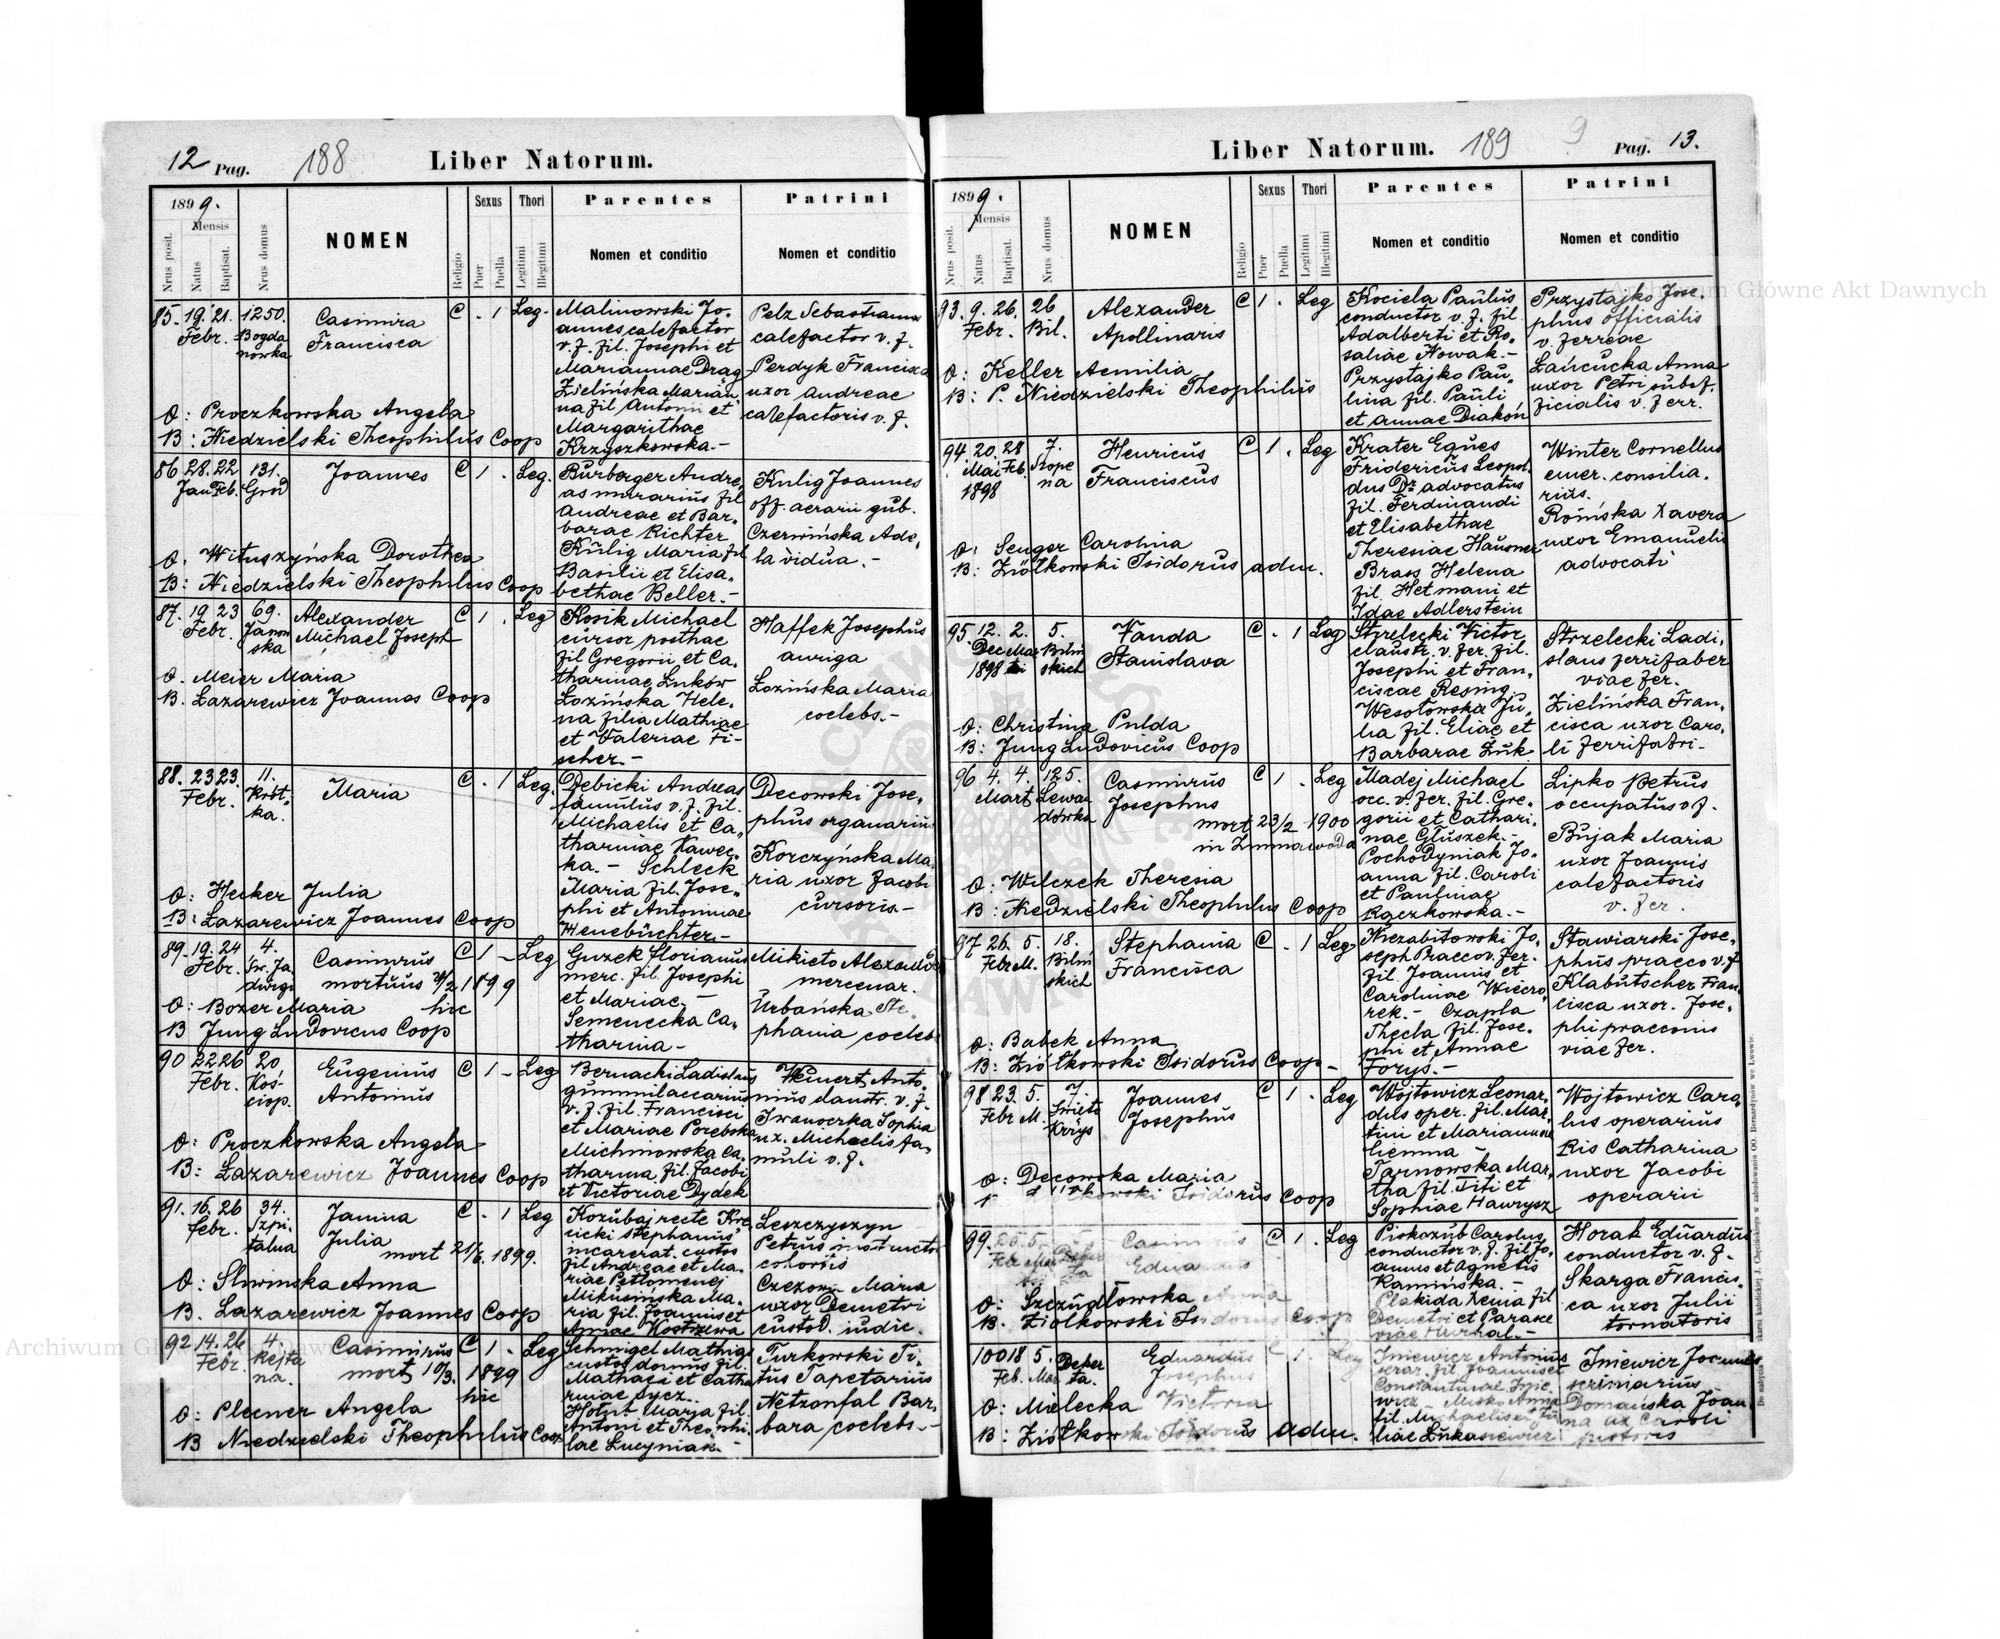 12 Pag. 188 Liber Natorum.
1899.
Nrus posit.
Mensis
Natus
Baptisat.
Nrus domus
NOMEN
Religio
Sexus
Puer
Puella
Thori
Legitimi
Illegitimi
Parentes
Nomen et conditio
Patrini
Nomen et conditio
85. 19. 21. Febr. 1250. Bogdanówka
Casimira
Francisca
C . 1 Leg.
Malinowski Jo-
annes calefactor
v. f. fil. Josephi et
Mariannae Drag
Zielińska Marian
na fil Antonii et
Margarithae
Krzyszkowska.-
Pelz Sebastianus
calefactor v. f.
Perdyk Francisca
uxor Andreae
calefactoris v. f.
O: Proczkowska Angela
B: Niedzielski Theophilus Coop
86 28. 22 Jan Feb. 131. Grod
Joannes
C 1 . Leg.
Burbarger Andre,
as murarius fil
Andreae et Bar-
barae Richter
Kulig Maria fil
Basilii et Elisa-
bethae Beller.-
Kulig Joannes
off. aerarii gub.
Czerwińska Ade,
la vidua.-
O: Wituszyńska Dorothea
B: Niedzielski Theophilus Coop
87. 19 23 Febr. 69. Janowska
Alexander
Michael Joseph
C 1 . Leg
Kosik Michael
cursor posthae
fil Gregorii et Ca,
tharinae Łuków
Łozińska Hele-
na filia Mathiae
et Valeriae Fi-
scher.-
Haffek Josephus
auriga
Łozińska Maria
coelebs.-
O. Meier Maria
B. Łazarewicz Joannes Coop
88. 23 23. Febr. 11. Krót-
ka.
Maria
C . 1 Leg.
Dębicki Andreas
famulus v. f. fil.
Michaelis et Ca,
tharinae Kawec-
ka.- Schleck
Maria fil. Jose-
phi et Antoninae
Henebüchter.-
Decowski Jose-
phus organarius
Korczyńska Ma-
ria uxor Jacobi
cursoris.-
O: Hecker Julia
B: Łazarewicz Joannes Coop
89. 19. 24 Febr. 4. Św. Ja
dwigi
Casimirus
mortuus 1899
hic
C 1 - Leg
Guzek Florianus
merc. fil. Josephi
et Mariae.-
Semenecka Ca,
tharina-
Mikieto Alexander
mercenar.
Urbańska Ste-
phania coelebs
O: Bozer Maria
B Jung Ludovicus Coop
90 22 26 Febr. 20 Koś-
ciop.
Eugenius
Antonius
C 1 - Leg
Bernacki Ladislaus
gummilaccarius
v. f. fil. Francisci
et Mariae Porębska
Michnowska Ca-
tharina fil. Jacobi
et Victoriae Dydek
Weinert Anto-
nius claustr. v. f.
Iwanocka Sophia
ux. Michaelis fa-
muli v. f.
O: Proczkowska Angela
B: Łazarewicz Joannes Coop
91. 16. 26 febr. 34. Szpi-
talna
Janina
Julia
mort 21/6. 1899.
C . 1 Leg
Kozubaj recte Kre
cicki Stephanus
incarcerat. custos
fil Andreae et Ma-
riae Petlomenej
Mikusińska Ma-
ria fil. Joannis et
Annae Kostrzewa
Leszczyszyn
Petrus instructor
cohortis
Maria
uxor Demetri
custod. iudic.
O: Sliwinska Anna
B. Łazarewicz Joannes Coop
92 14. 26 Febr 4. Rejta
na.
Casimirus
mort 10/3. 1899
hic
C 1 - Leg
Schmigel Mathias
custos domus fil.
Mathaei et Catha
rinae Sycz.
Hotut Maria fil.
Antoni et Theophi-
lae Lucyniak.-
Turkowski Ti-
tus Tapetarius
Netzonfal Bar-
bara coelebs.-
O: Plecner Angela
B Niedzielski Theophilus Coop
Liber Natorum. 189 9 Pag. 13.
1899.
Nrus posit.
Mensis
Natus
Baptisat.
Nrus domus
NOMEN
Religio
Sexus
Puer
Puella
Thori
Legitimi
Illegitimi
Parentes
Nomen et conditio
Patrini
Nomen et conditio
93. 9. 26. Febr. 26 Bil.
Alexander
Apollinaris
C 1 . Leg
Kociela Paulus
conductor v. f. fil.
Adalberti et Ro,
saliae Nowak.-
Przystajko Pau-
lina fil. Pauli
et Annae Diakón
Przystajko Jose-
phus officialis
v. ferreae
Łańcucka Anna
uxor Petri subof-
ficialis v. ferr.
O: Keller Aemilia
B: P. Niedzielski Theophilus
94. 20. 28 Mai. Feb. 1898 7. Kope
na
Henricus
Franciscus
C 1 . Leg
Krater Eques
Fridericus Leopol-
dus Dr advocatus
fil. Ferdinandi
et Elisabethae
Theresiae Hausner
Brass Helena
fil. Hetmani et
Idae Adlerstein
Winter Cornelius
emer. consilia,
rius.
Romska Xavera
uxor Emanuelis
advocati
O: Senger Carolina
B: Ziółkowski Isidorus adm.
95 12. 2. Dec Mar 1898 tii 5. Biliń
skich
Vanda
Stanislava
C . 1 Leg
Strelecki Victor
claustr. v. fer. fil.
Josephi et Fran-
ciscae Resnig.
Wesołowska Ju-
lia fil. Eliae et
Barbarae Żuk
Strzelecki Ladi-
slaus ferrifaber
viae fer.
Zielińska Fran-
cisca uxor Caro-
li ferrifabri-
O: Christina Pulda
B: Jung Ludovicus Coop
96 4. 4. Mart 125. Lewan
dówka
Casimirus
Josephus
mort 23/2 1900
in Zimnawoda
C 1 . Leg
Madej Michael
occ. v. fer. fil. Gre-
gorii et Cathari-
nae Głuszek.-
Pochodyniak Jo-
anna fil. Caroli
et Paulinae
Rączkowska.-
Lipko Petrus
occupatus v f.
Bujak Maria
uxor Joannis
calefactoris
v. fer.
O: Wilczek Theresia
B: Niedzielski Theophilus Coop
97 26. 5. Febr M. 18. Biliń
skich
Stephania
Francisca
C . 1 Leg
Niezabitowski Jo-
seph Praeco v. fer.
fil. Joannis et
Carolinae Wieczo-
rek.- Czapla
Thecla fil. Jose-
phi et Annae
Forys.-
Stawiarski Jose-
phus praeco v. f.
Klabutscher Fran-
cisca uxor. Jose-
phi praeconis
viae fer.
O: Babek Anna
B: Ziółkowski Isidorus Coop-
98 23. 5. Febr M. 7. Święto
Krzys
Joannes
Josephus
C 1 . Leg
Wójtowicz Leonar-
dus oper. fil. Mar-
tini et Mariannae
Ciemna -
Tarnowska Mar-
tha fil. Titi et
Sophiae Hawrysz
Wojtowicz Caro-
lus operarius
Ris Catharina
uxor Jacobi
operarii
O: Decowska Maria
Isidorus Coop
99. 20. 5.
Casimirus
Eduardus
C 1 . Leg
Piskozub Carolus
conductor v. f. fil Jo,
annis et Agnetis
Kamińska.-
Plakida Xenia fil
Demetri et Paraske
viae Hurhal.-
Horak Eduardus
conductor v. f.
Skarga Francis-
ca uxor Julii
tornatoris
O: Szczudłowska Anna
B. Ziolkowski Isidorus Coop
100 18 5. Feb. Mar Deker
ta.
Eduardus
Josephus
C 1 . Leg
Iniewicz Antonius
fil Joannis et
Iniewicz Joannes
scriniarius
Domańska Joan
na ux Caroli
pistoris
fil. Michaelis et Ju
liae Łukasiewicz
O: Mielecka Victoria
B: Ziółkowski Isidorus adm.
Archiwum Główne Akt Dawnych